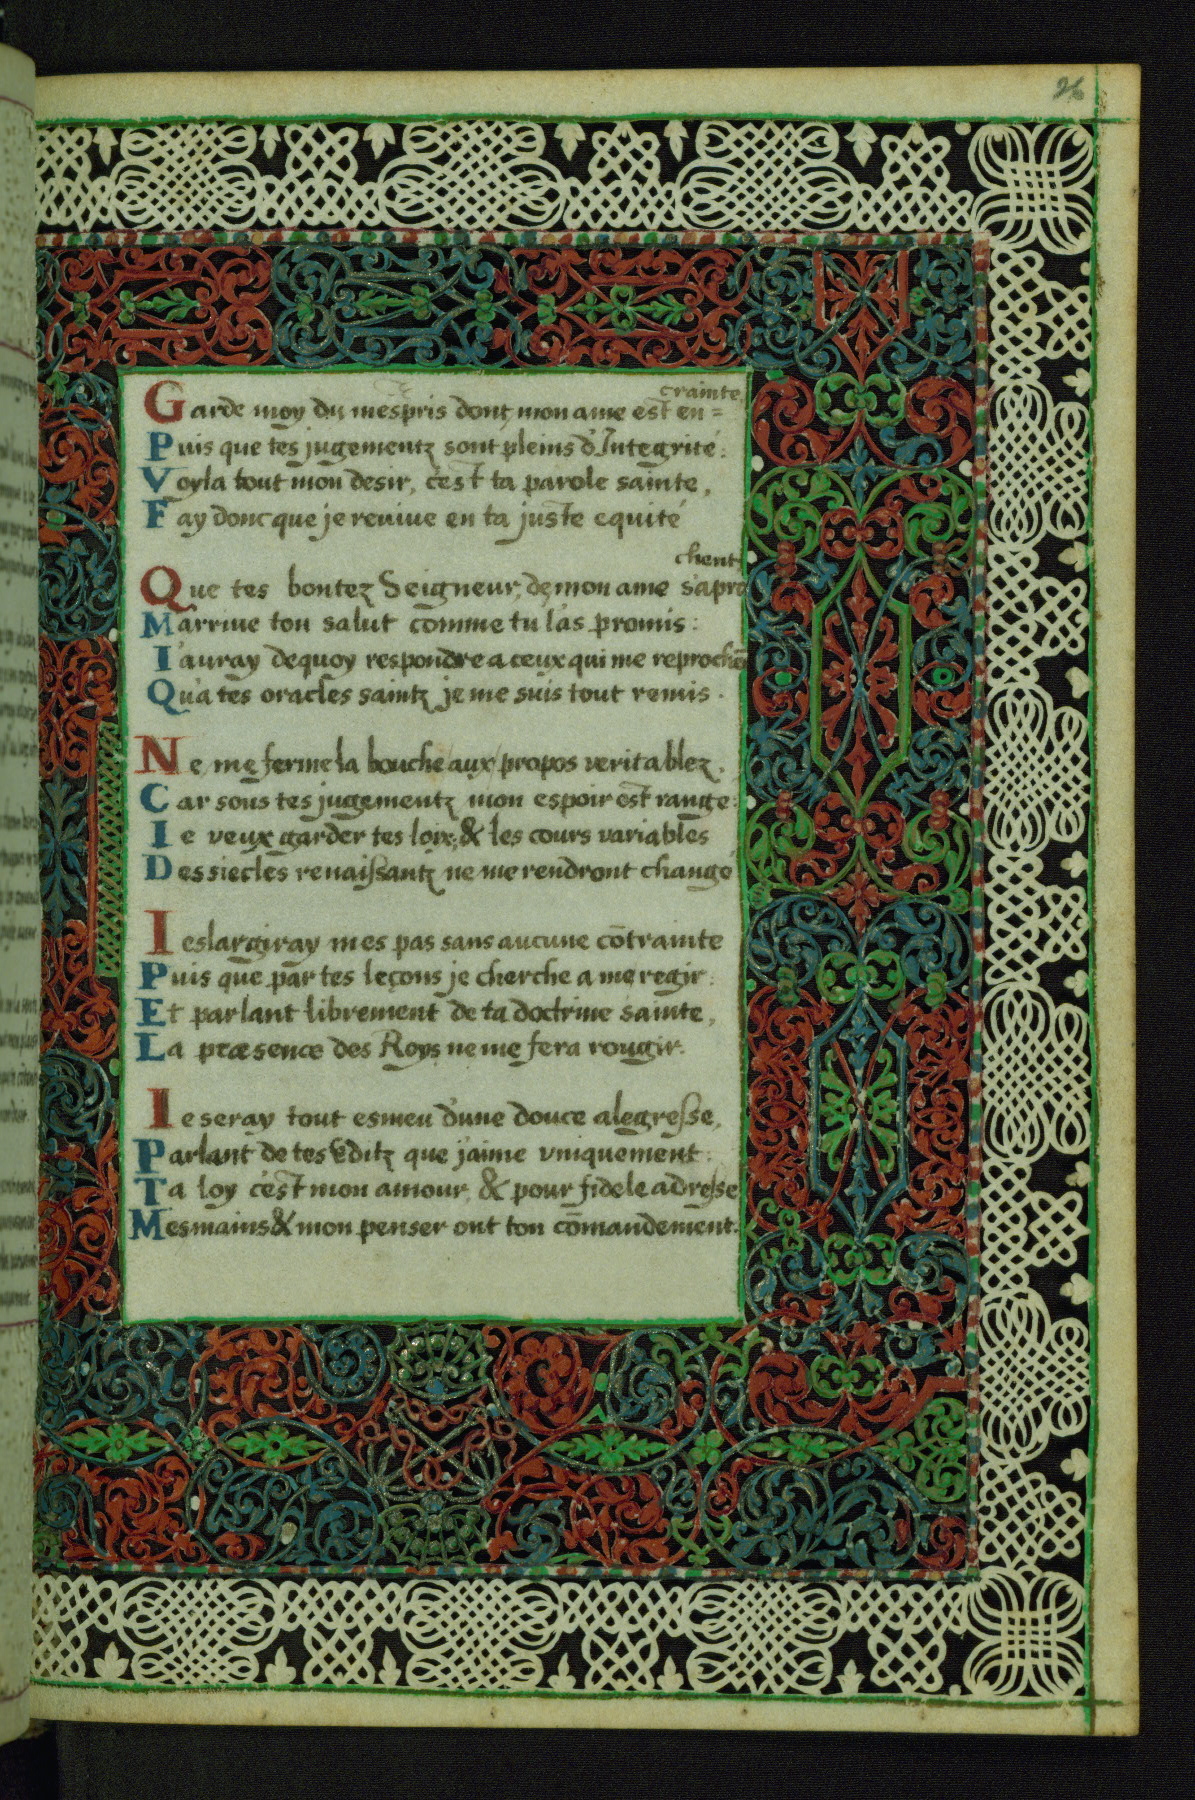 26
crainte
Garde moy du mespris dont mon ame est en=
Puis que tes jugementz sont pleins d'Integrité:
Voyla tout mon desir, c'est ta parole sainte,
Fay donc que je reviue en ta juste equité
chent
Que tes bontez Seigneur, de mon ame s'apro
M'arriue ton salut comme tu l'as promis:
I'auray dequoy respondre a ceux qui me reprochẽ
Qu'a tes oracles saintz je me suis tout remis.
Ne me ferme la bouche aux propos veritablez,
Car sous tes jugementz mon espoir est rangé:
Ie veux garder tes loix, & les cours variables
Des siecles renaissantz ne me rendront changé
I'eslargiray mes pas sans aucune cõtrainte
Puis que par tes leçons je cherche a me regir:
Et parlant librement de ta doctrine sainte,
La præsence des Roys ne me fera rougir.
Ie seray tout esmeu d'une douce alegresse,
Parlant de tes Editz que j'aime vniquement:
Ta loy c'est mon amour, & pour fidele adresse
Mes mains & mon penser ont ton cõmandement.